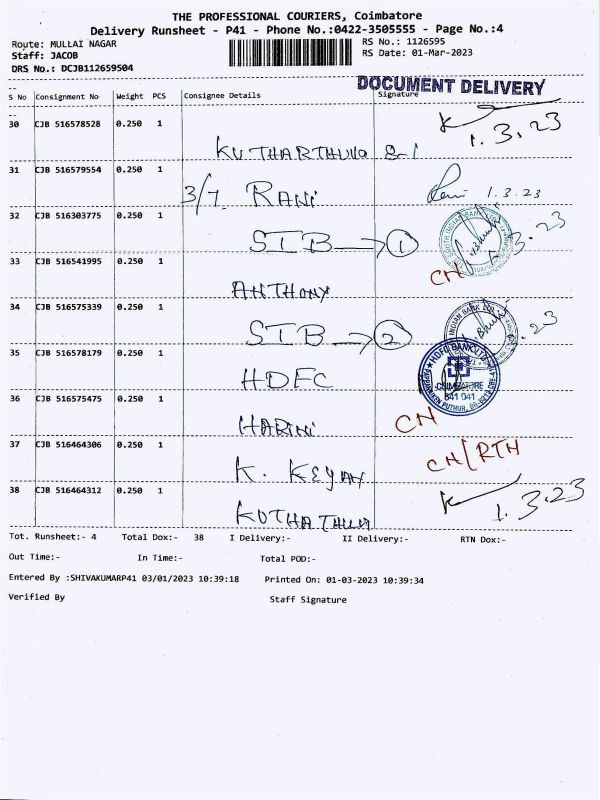 THE PROFESSIONAL COURIERS, Coimbatore
Delivery Runsheet - P41 - Phone No.:0422-3505555 - Page No.:4
Route: MULLAI NAGAR RS No.: 1126595
Staff: JACOB RS Date: 01-Mar-2023
DRS No.: DCJB112659504
DOCUMENT DELIVERY
S No Consignment No Weight PCS Consignee Details Signature
30 CJB 516578528 0.250 1
1.3.23
31 CJB 516579554 0.250 1
3/7. RANI 1.3.23
32 CJB 516303775 0.250 1
SIB → 1
33 CJB 516541995 0.250 1 CH
ANTHONY
34 CJB 516575339 0.250 1
SIB → 2
35 CJB 516578179 0.250 1
HDFC HDFC BANK LTD COIMBATORE 641 041
36 CJB 516575475 0.250 1
HARINI CH
37 CJB 516464306 0.250 1 CH/RTH
K.
38 CJB 516464312 0.250 1 1.3.23
Tot. Runsheet:- 4 Total Dox:- 38 I Delivery:- II Delivery:- RTN Dox:-
Out Time:- In Time:- Total POD:-
Entered By :SHIVAKUMARP41 03/01/2023 10:39:18 Printed On: 01-03-2023 10:39:34
Verified By Staff Signature